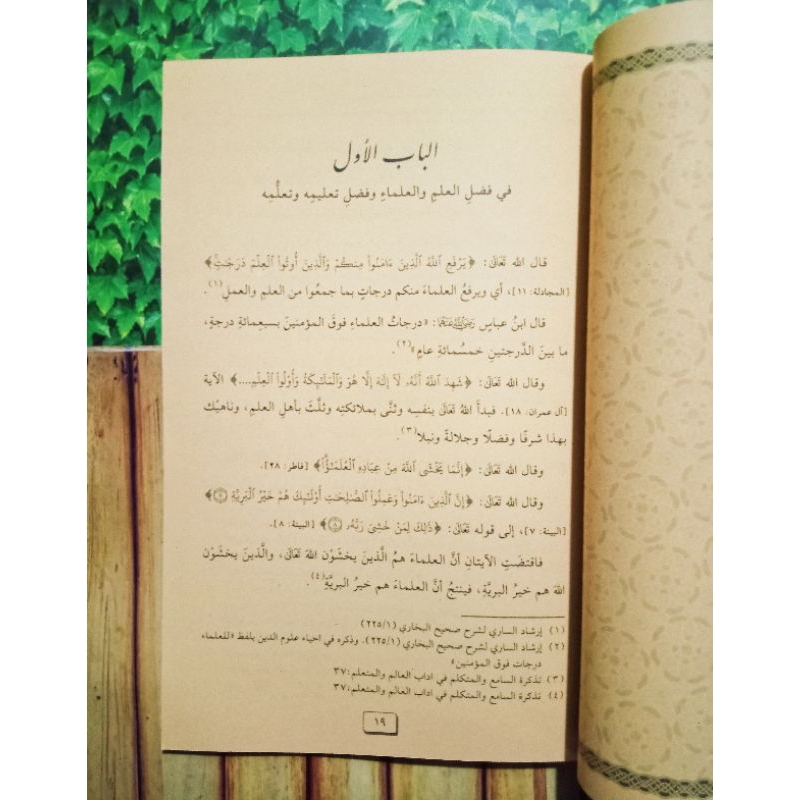 الباب الأول
في فضلِ العلمِ والعلماءِ وفضلِ تعليمِه وتعلُّمِه
قال الله تَعَالَى: ﴿يَرْفَعِ ٱللَّهُ ٱلَّذِينَ ءَامَنُوا۟ مِنكُمْ وَٱلَّذِينَ أُوتُوا۟ ٱلْعِلْمَ دَرَجَٰتٍۢ﴾
[المجادلة: ١١]، أي ويرفعُ العلماءَ منكم درجاتٍ بما جمعُوا من العلمِ والعملِ(١).
قال ابنُ عباسٍ رَضِيَ اللَّهُ عَنْهُمَا: «درجاتُ العلماءِ فوقَ المؤمنينَ بسبعمائةِ درجةٍ،
ما بينَ الدَّرجتينِ خمسُمائةِ عامٍ»(٢).
وقال الله تَعَالَى: ﴿شَهِدَ ٱللَّهُ أَنَّهُۥ لَآ إِلَٰهَ إِلَّا هُوَ وَٱلْمَلَٰٓئِكَةُ وَأُو۟لُوا۟ ٱلْعِلْمِ....﴾ الآية
[آل عمران: ١٨]. فبدأَ اللهُ تَعَالَى بنفسِه وثنَّى بملائكتِه وثلَّثَ بأهلِ العلمِ، وناهيْك
بهذا شرفًا وفضلًا وجلالةً ونبلا(٣).
وقال الله تَعَالَى: ﴿إِنَّمَا يَخْشَى ٱللَّهَ مِنْ عِبَادِهِ ٱلْعُلَمَٰٓؤُا۟﴾ [فاطر: ٢٨].
وقال الله تَعَالَى: ﴿إِنَّ ٱلَّذِينَ ءَامَنُوا۟ وَعَمِلُوا۟ ٱلصَّٰلِحَٰتِ أُو۟لَٰٓئِكَ هُمْ خَيْرُ ٱلْبَرِيَّةِ ٧﴾
[البينة: ٧]، إلى قوله تَعَالَى: ﴿ذَٰلِكَ لِمَنْ خَشِىَ رَبَّهُۥ ٨﴾ [البينة: ٨].
فاقتضَتِ الآيتانِ أنَّ العلماءَ همُ الَّذينَ يخشَوْن اللهَ تَعَالَى، والَّذينَ يخشَوْن
اللهَ هم خيرُ البريَّةِ، فينتجُ أنَّ العلماءَ هم خيرُ البريَّةِ(٤).
(١) إرشاد الساري لشرح صحيح البخاري (٢٢٥/١)
(٢) إرشاد الساري لشرح صحيح البخاري (٢٢٥/١). وذكره في احياء علوم الدين بلفظ «للعلماء
درجات فوق المؤمنين»
(٣) تذكرة السامع والمتكلم في آداب العالم والمتعلم:٣٧
(٤) تذكرة السامع والمتكلم في اداب العالم والمتعلم:٣٧
١٩